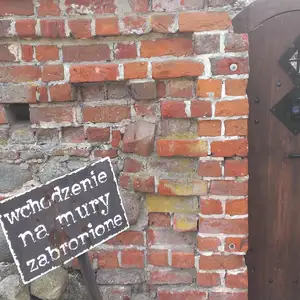 wchodzenie
na mury
zabronione